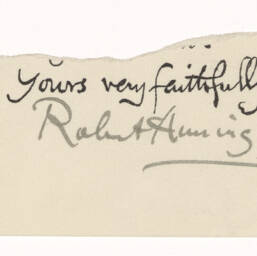 Yours very faithfully
Robert Anning